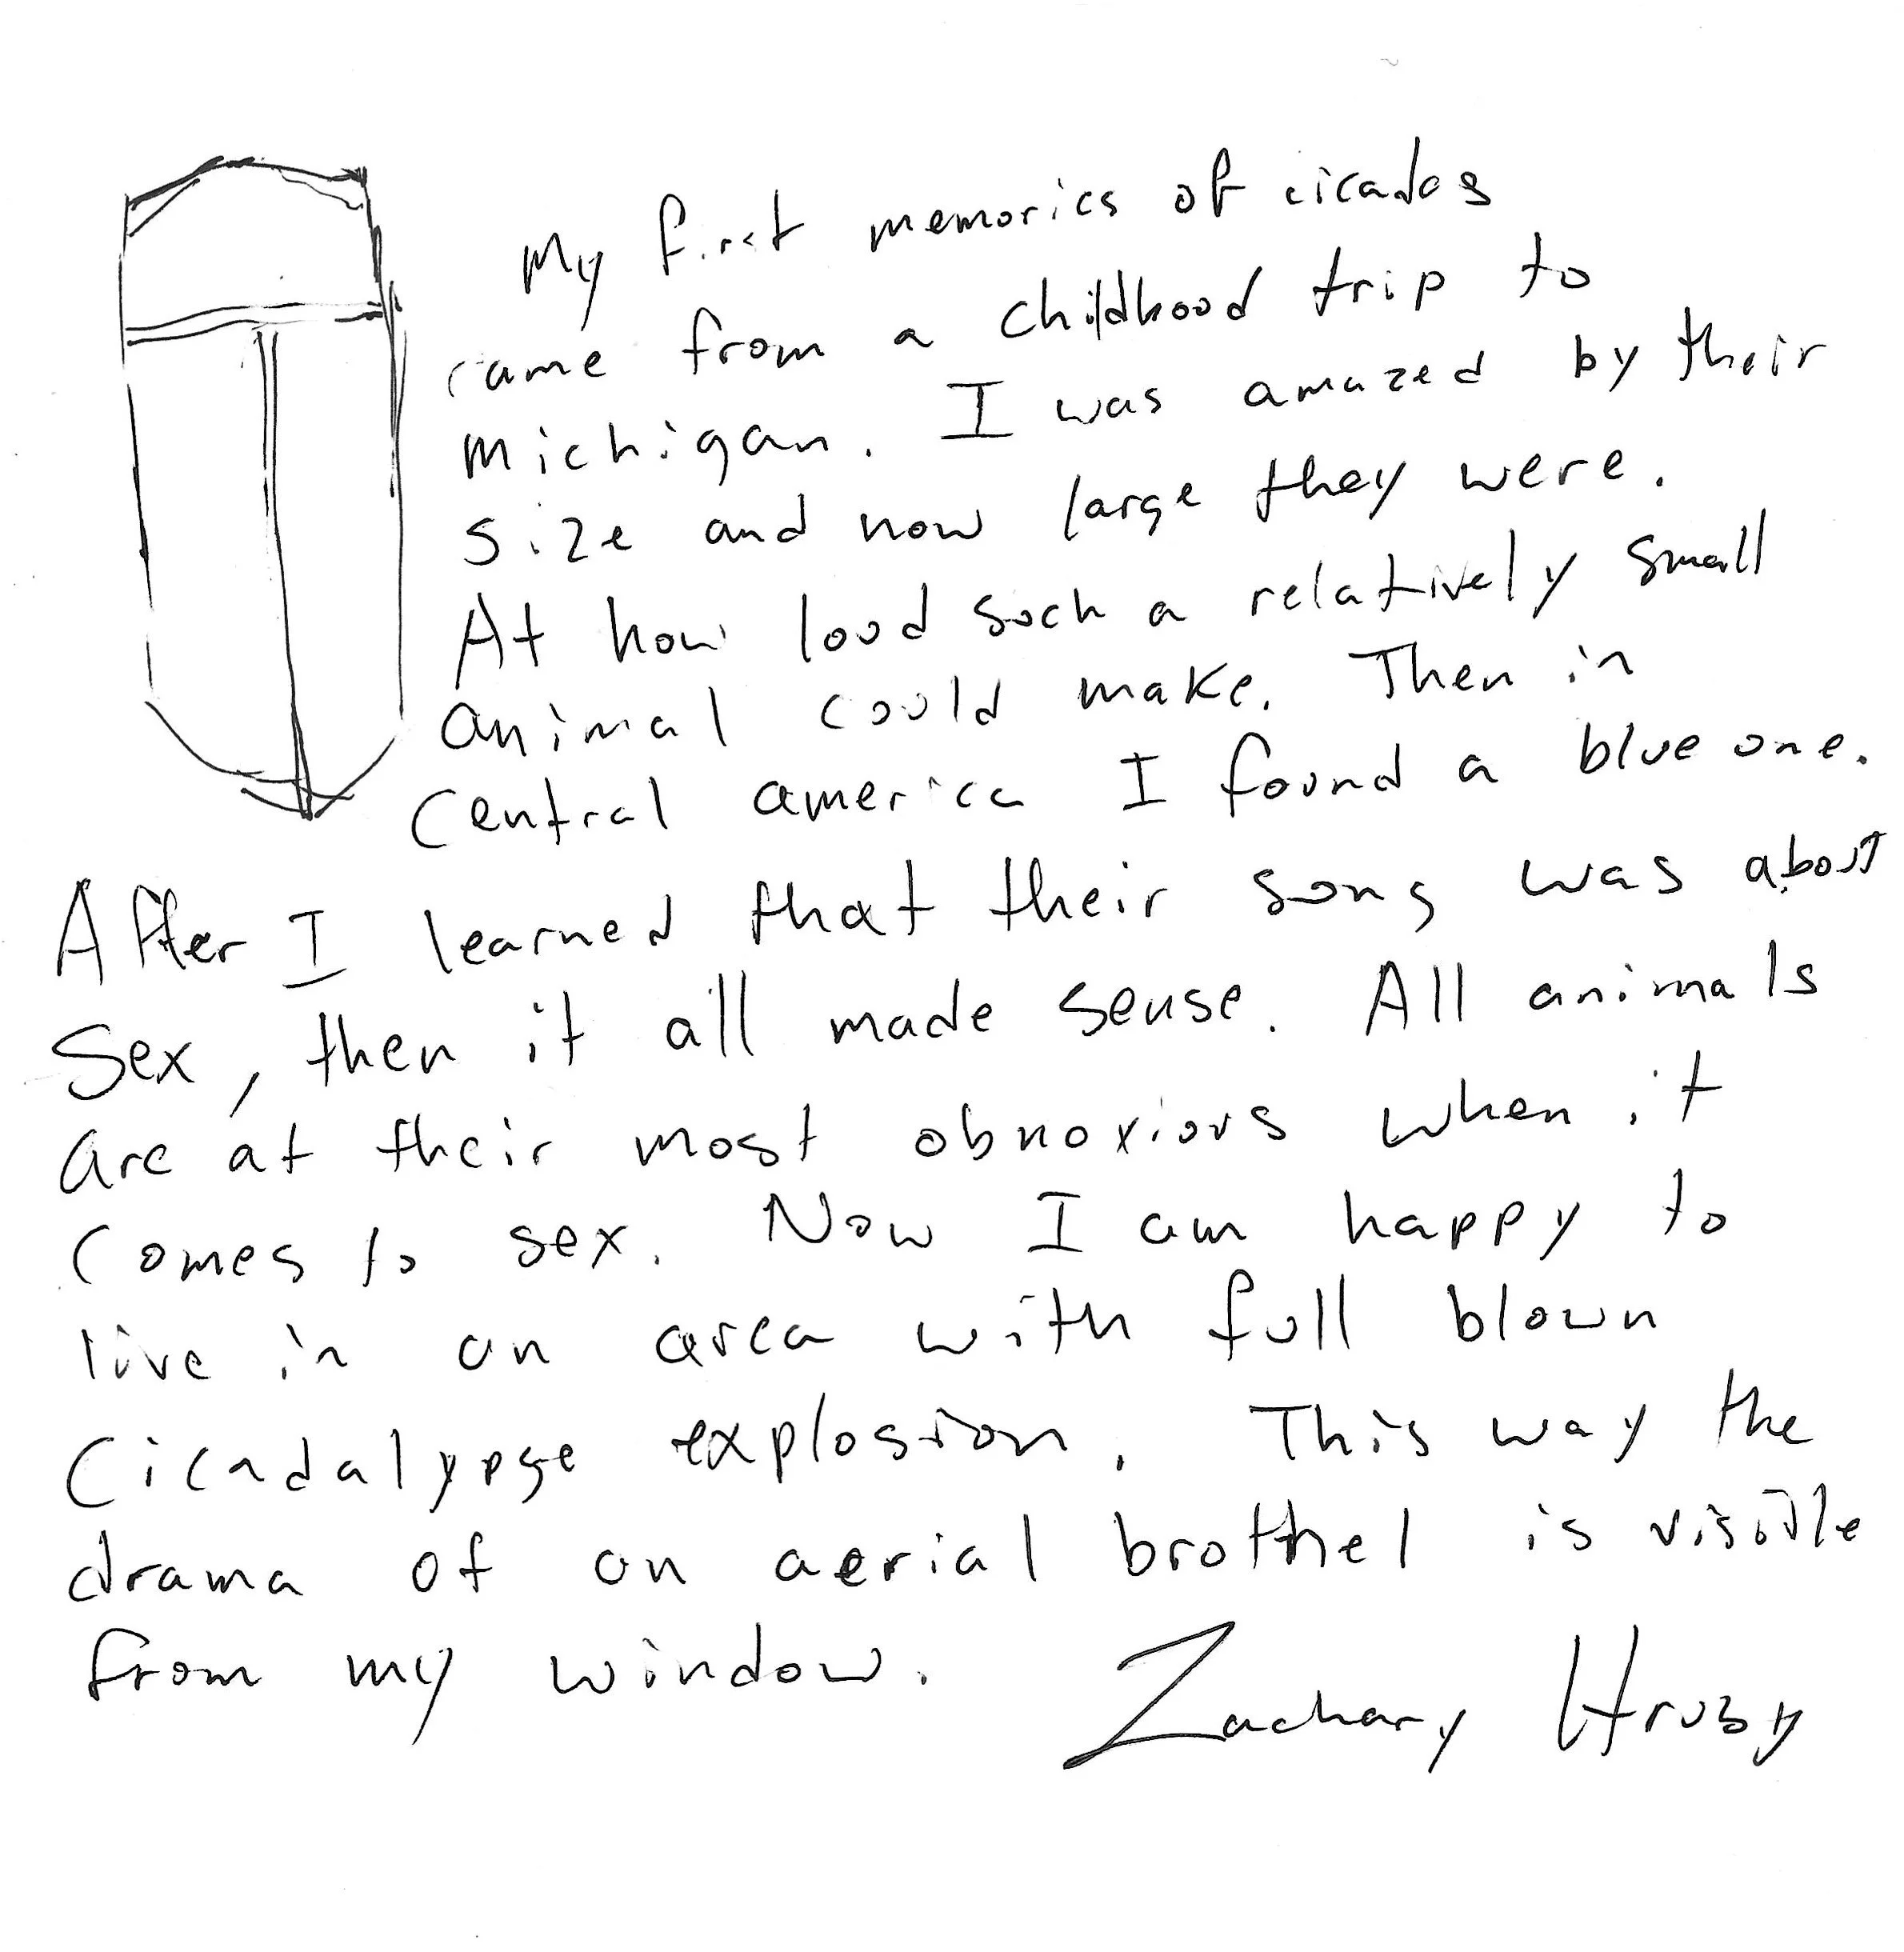 My first memories of cicadas
came from a childhood trip to
Michigan. I was amazed by their
size and how large they were.
At how loud such a relatively small
animal could make. Then in
Central america I found a blue one.
After I learned that their song was about
Sex, then it all made sense. All animals
are at their most obnoxious when it
comes to sex. Now I am happy to
live in an area with full blown
Cicadalypse explosion. This way the
drama of an aerial brothel is visible
from my window. Zachary Hruby